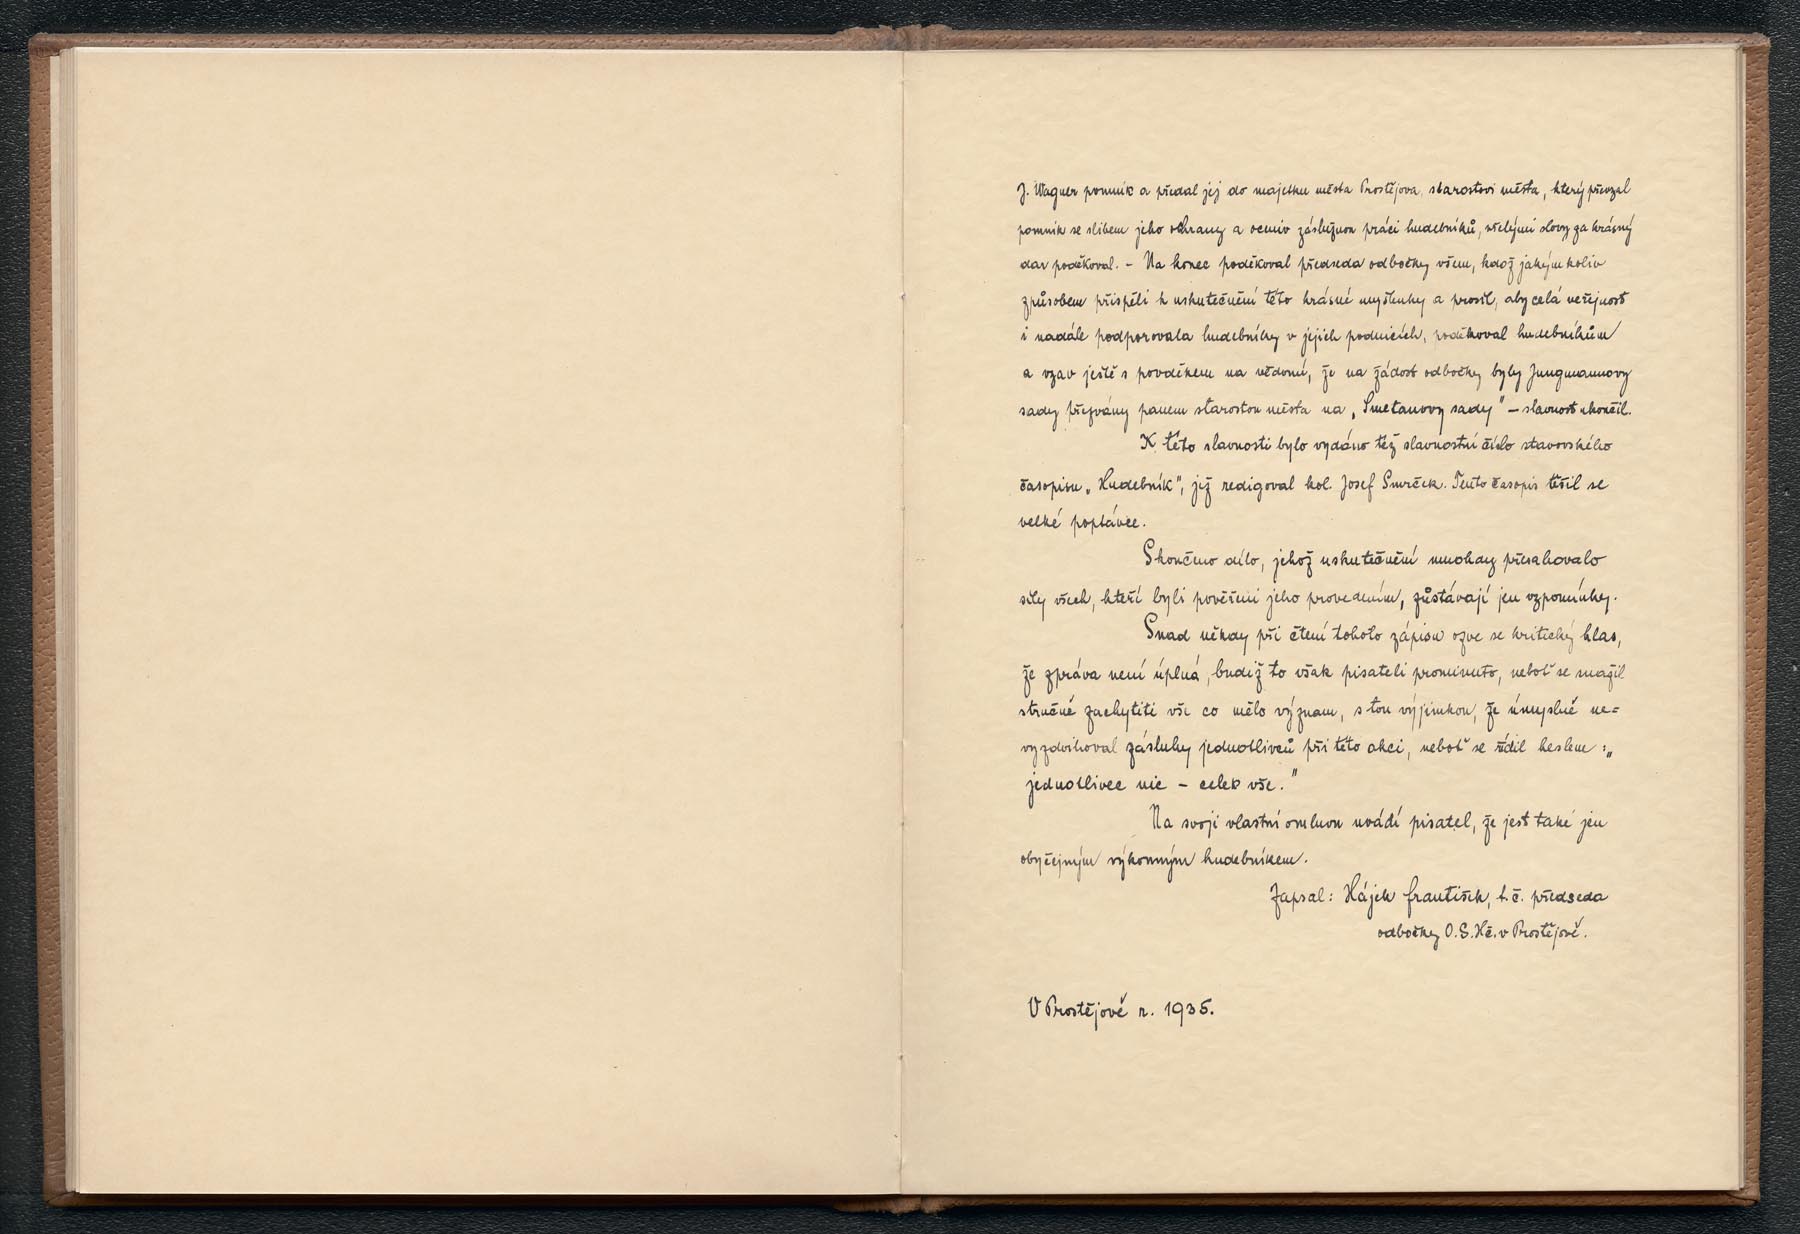 J. Wagner pomník a předal jej do majetku města Prostějova, starostovi města, který převzal
pomník se slibem jeho ochrany a oceniv záslužnou práci hudebníků, vřelými slovy za krásný
dar poděkoval. – Na konec poděkoval předseda odbočky všem, kdož jakýmkoliv
způsobem přispěli k uskutečnění této krásné myšlenky a prosil, aby celá veřejnost
i nadále podporovala hudebníky v jejich podnicích, poděkoval hudebníkům
a vzav ještě s povděkem na vědomí, že na žádost odbočky byly Jungmannovy
sady přezvány panem starostou města na „Smetanovy sady" – slavnost ukončil.
K této slavnosti bylo vydáno též slavnostní číslo stavovského
časopisu „Hudebník", jež redigoval kol. Josef Smrček. Tento časopis těšil se
velké poptávce.
Skončeno dílo, jehož uskutečnění mnohdy přesahovalo
síly všech, kteří byli pověřeni jeho provedením, zůstávají jen vzpomínky.
Snad někdy při čtení tohoto zápisu ozve se kritický hlas,
že zpráva není úplná, budiž to však pisateli prominuto, neboť se snažil
stručně zachytiti vše co mělo význam, s tou výjimkou, že úmyslně ne=
vyzdvihoval zásluhy jednotlivců při této akci, neboť se řídil heslem :„
jednotlivec nic – celek vše."
Na svoji vlastní omluvu uvádí pisatel, že jest také jen
obyčejným výkonným hudebníkem.
Zapsal: Hájek František, t. č. předseda
odbočky O. S. Hč. v Prostějově.
V Prostějově r. 1935.